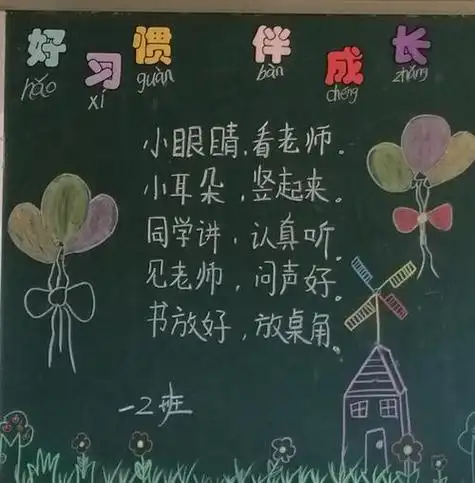 好习惯 伴成长
hǎo xí guàn bàn chéng zhǎng
小眼睛，看老师。
小耳朵，竖起来。
同学讲，认真听。
见老师，问声好。
书放好，放桌角。
一2班